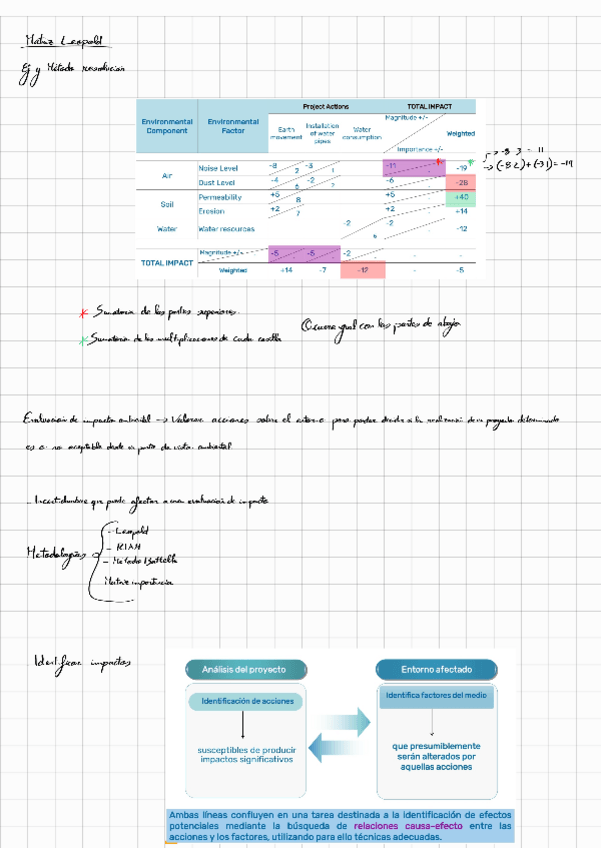 Matriz Leopold
Ej y Método resolución
Project Actions TOTAL IMPACT
Environmental Component Environmental Factor Earth movement Installation of water pipes Water consumption Magnitude +/- Importance -/- Weighted
Air Noise Level -8 2 -3 1 -11 - -19
Dust Level -4 5 -2 2 -6 - -28
Soil Permeability +5 8 +5 - +40
Erosion +2 7 +2 - +14
Water Water resources -2 6 -2 - -12
TOTAL IMPACT Magnitude +/- -5 -5 -2 - -
Weighted +14 -7 -12 - -5
-> -8 3 = 11
-> (-8 2) + (-3 1) = -19
* Sumatoria de las partes superiores.
* Sumatoria de las multiplicaciones de cada casilla
Ocurre igual con las partes de abajo
Evaluación de impacto ambiental -> Valorar acciones sobre el entorno para poder decidir si la realización de un proyecto determinado
es o no aceptable desde un punto de vista ambiental.
- Incertidumbre que puede afectar a una evaluación de impacto
Metodologías
- Leopold
- RIAM
- Método Battelle
Matriz importancia
Identificar impactos
Análisis del proyecto Entorno afectado
Identificación de acciones Identifica factores del medio
susceptibles de producir impactos significativos
que presumiblemente serán alterados por aquellas acciones
Ambas líneas confluyen en una tarea destinada a la identificación de efectos
potenciales mediante la búsqueda de relaciones causa-efecto entre las
acciones y los factores, utilizando para ello técnicas adecuadas.